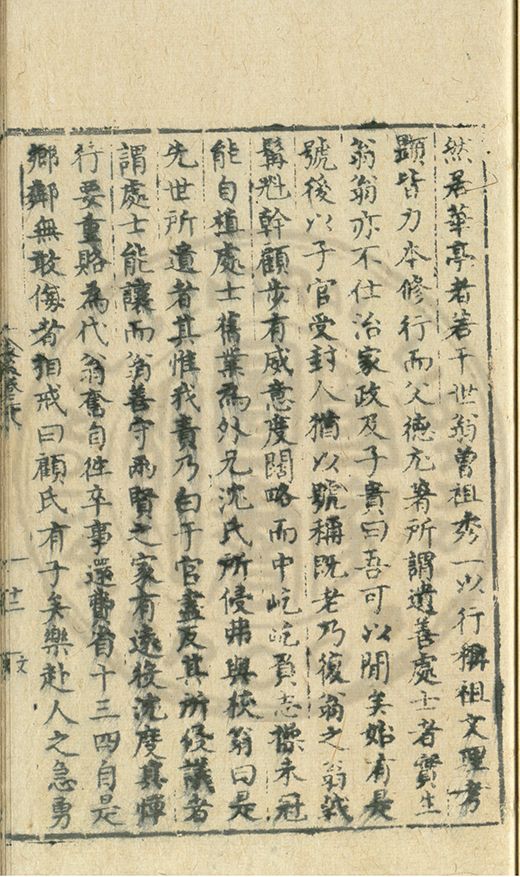 然居華亭者若干世翁曾祖秀一以行稱祖文理考
顯皆力本修行而父德尤著所謂遺善處士者實生
翁翁亦不仕治家政及子貴曰吾可以閒矣始有是
號後以子官受封人猶以號稱既老乃復翁之翁戟
髯魁幹顧步有威意度闊略而中屹屹負志操未冠
能自植處士舊業為外兄沈氏所侵弗與校翁曰是
先世所遺者其惟我責乃白于官盡反其所侵議者
謂處士能讓而翁善守兩賢之家有遠役沈度其憚
行要重賂為代翁奮自往卒事還費省十三四自是
鄉鄰無敢侮者相戒曰顧氏有子矣樂赴人之急勇